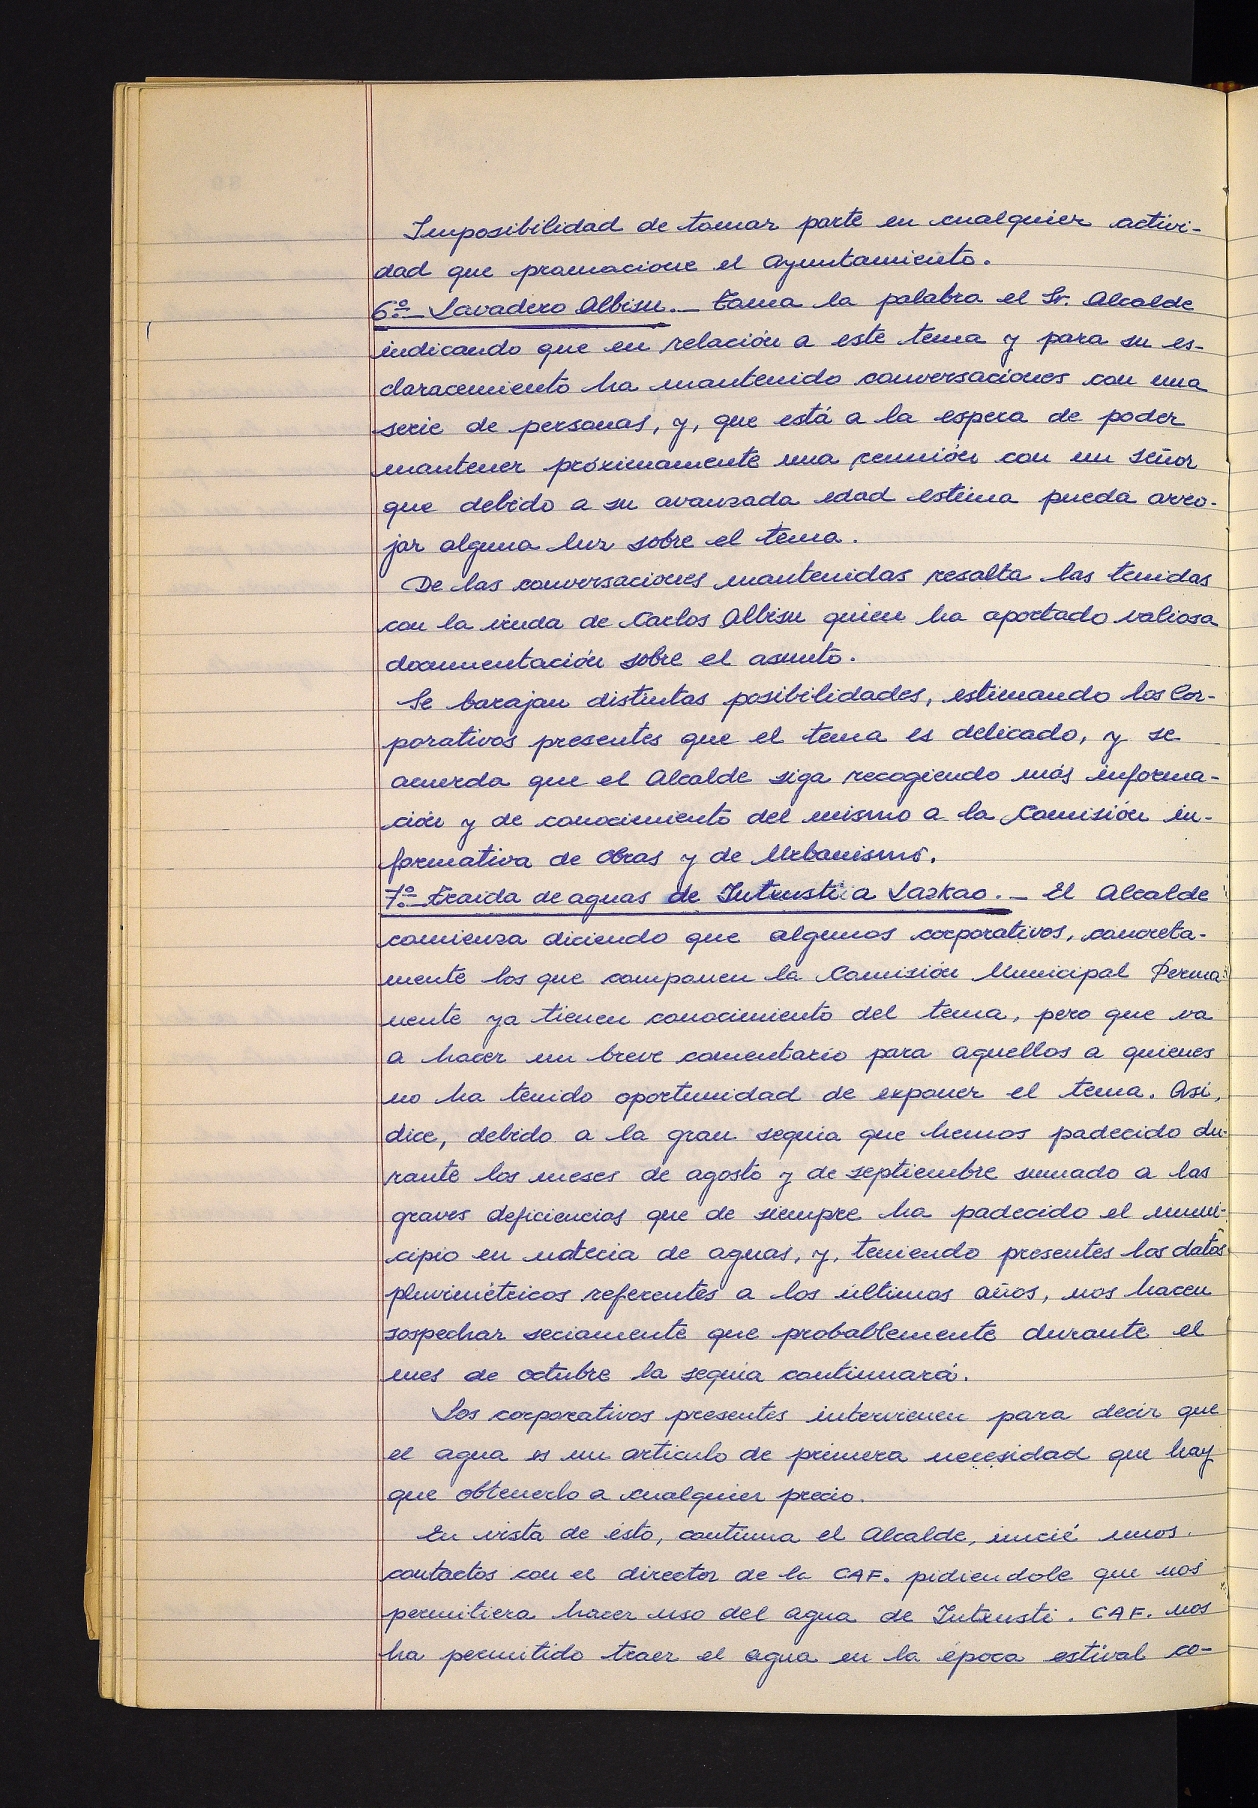 Imposibilidad de tomar parte en cualquier activi-
dad que promocione el Ayuntamiento.
6º.- Lavadero Albisu.- Toma la palabra el Sr. Alcalde
indicando que en relación a este tema y para su es-
claracemiento ha mantenido conversaciones con una
serie de personas, y, que está a la espera de poder
mantener próximamente una reunión con un señor
que debido a su avanzada edad estima pueda arro-
jar alguna luz sobre el tema.
De las conversaciones mantenidas resalta las tenidas
con la viuda de Carlos Albisu quien ha aportado valiosa
documentación sobre el asunto.
Se barajan distintas posibilidades, estimando los Cor-
porativos presentes que el tema es delicado, y se
acuerda que el Alcalde siga recogiendo más informa-
ción y de conocimiento del mismo a la Comisión in-
formativa de Obras y de Urbanismo.
7º.- Traida de aguas de Intxusti a Lazkao.- El Alcalde
comienza diciendo que algunos corporativos, concreta-
mente los que componen la Comisión Municipal Perma-
nente ya tienen conocimiento del tema, pero que va
a hacer un breve comentario para aquellos a quienes
no ha tenido oportunidad de exponer el tema. Asi,
dice, debido a la gran sequia que hemos padecido du-
rante los meses de agosto y de septiembre sumado a las
graves deficiencias que de siempre ha padecido el muni-
cipio en materia de aguas, y, teniendo presentes los datos
pluviométricos referentes a los últimos años, nos hacen
sospechar seriamente que probablemente durante el
mes de octubre la sequia continuará.
Los corporativos presentes intervienen para decir que
el agua es un articulo de primera necesidad que hay
que obtenerlo a cualquier precio.
En vista de ésto, continua el Alcalde, inicié unos
contactos con el director de la CAF. pidiendole que nos
permitiera hacer uso del agua de Intxusti. CAF. nos
ha permitido traer el agua en la época estival co-